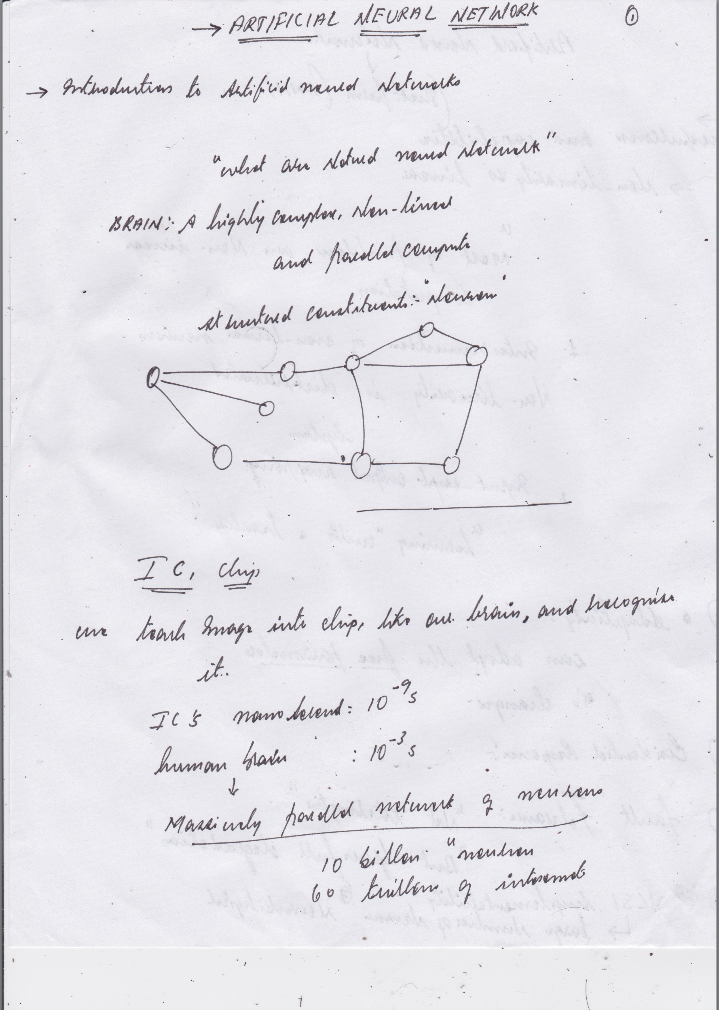 → ARTIFICIAL NEURAL NETWORK ①
→ Introduction to Artificial neural Networks
"what are Natural neural Network"
BRAIN:- A highly complex, Non-linear
and parallel computer
structured constituents:- "Neuron"
IC, chip
we teach Image into chip, like our brain, and recognise
it..
IC's nano second: 10⁻⁹s
human brain : 10⁻³s
↓
Massively parallel network of neurons
10 billion "neuron
60 trillion of